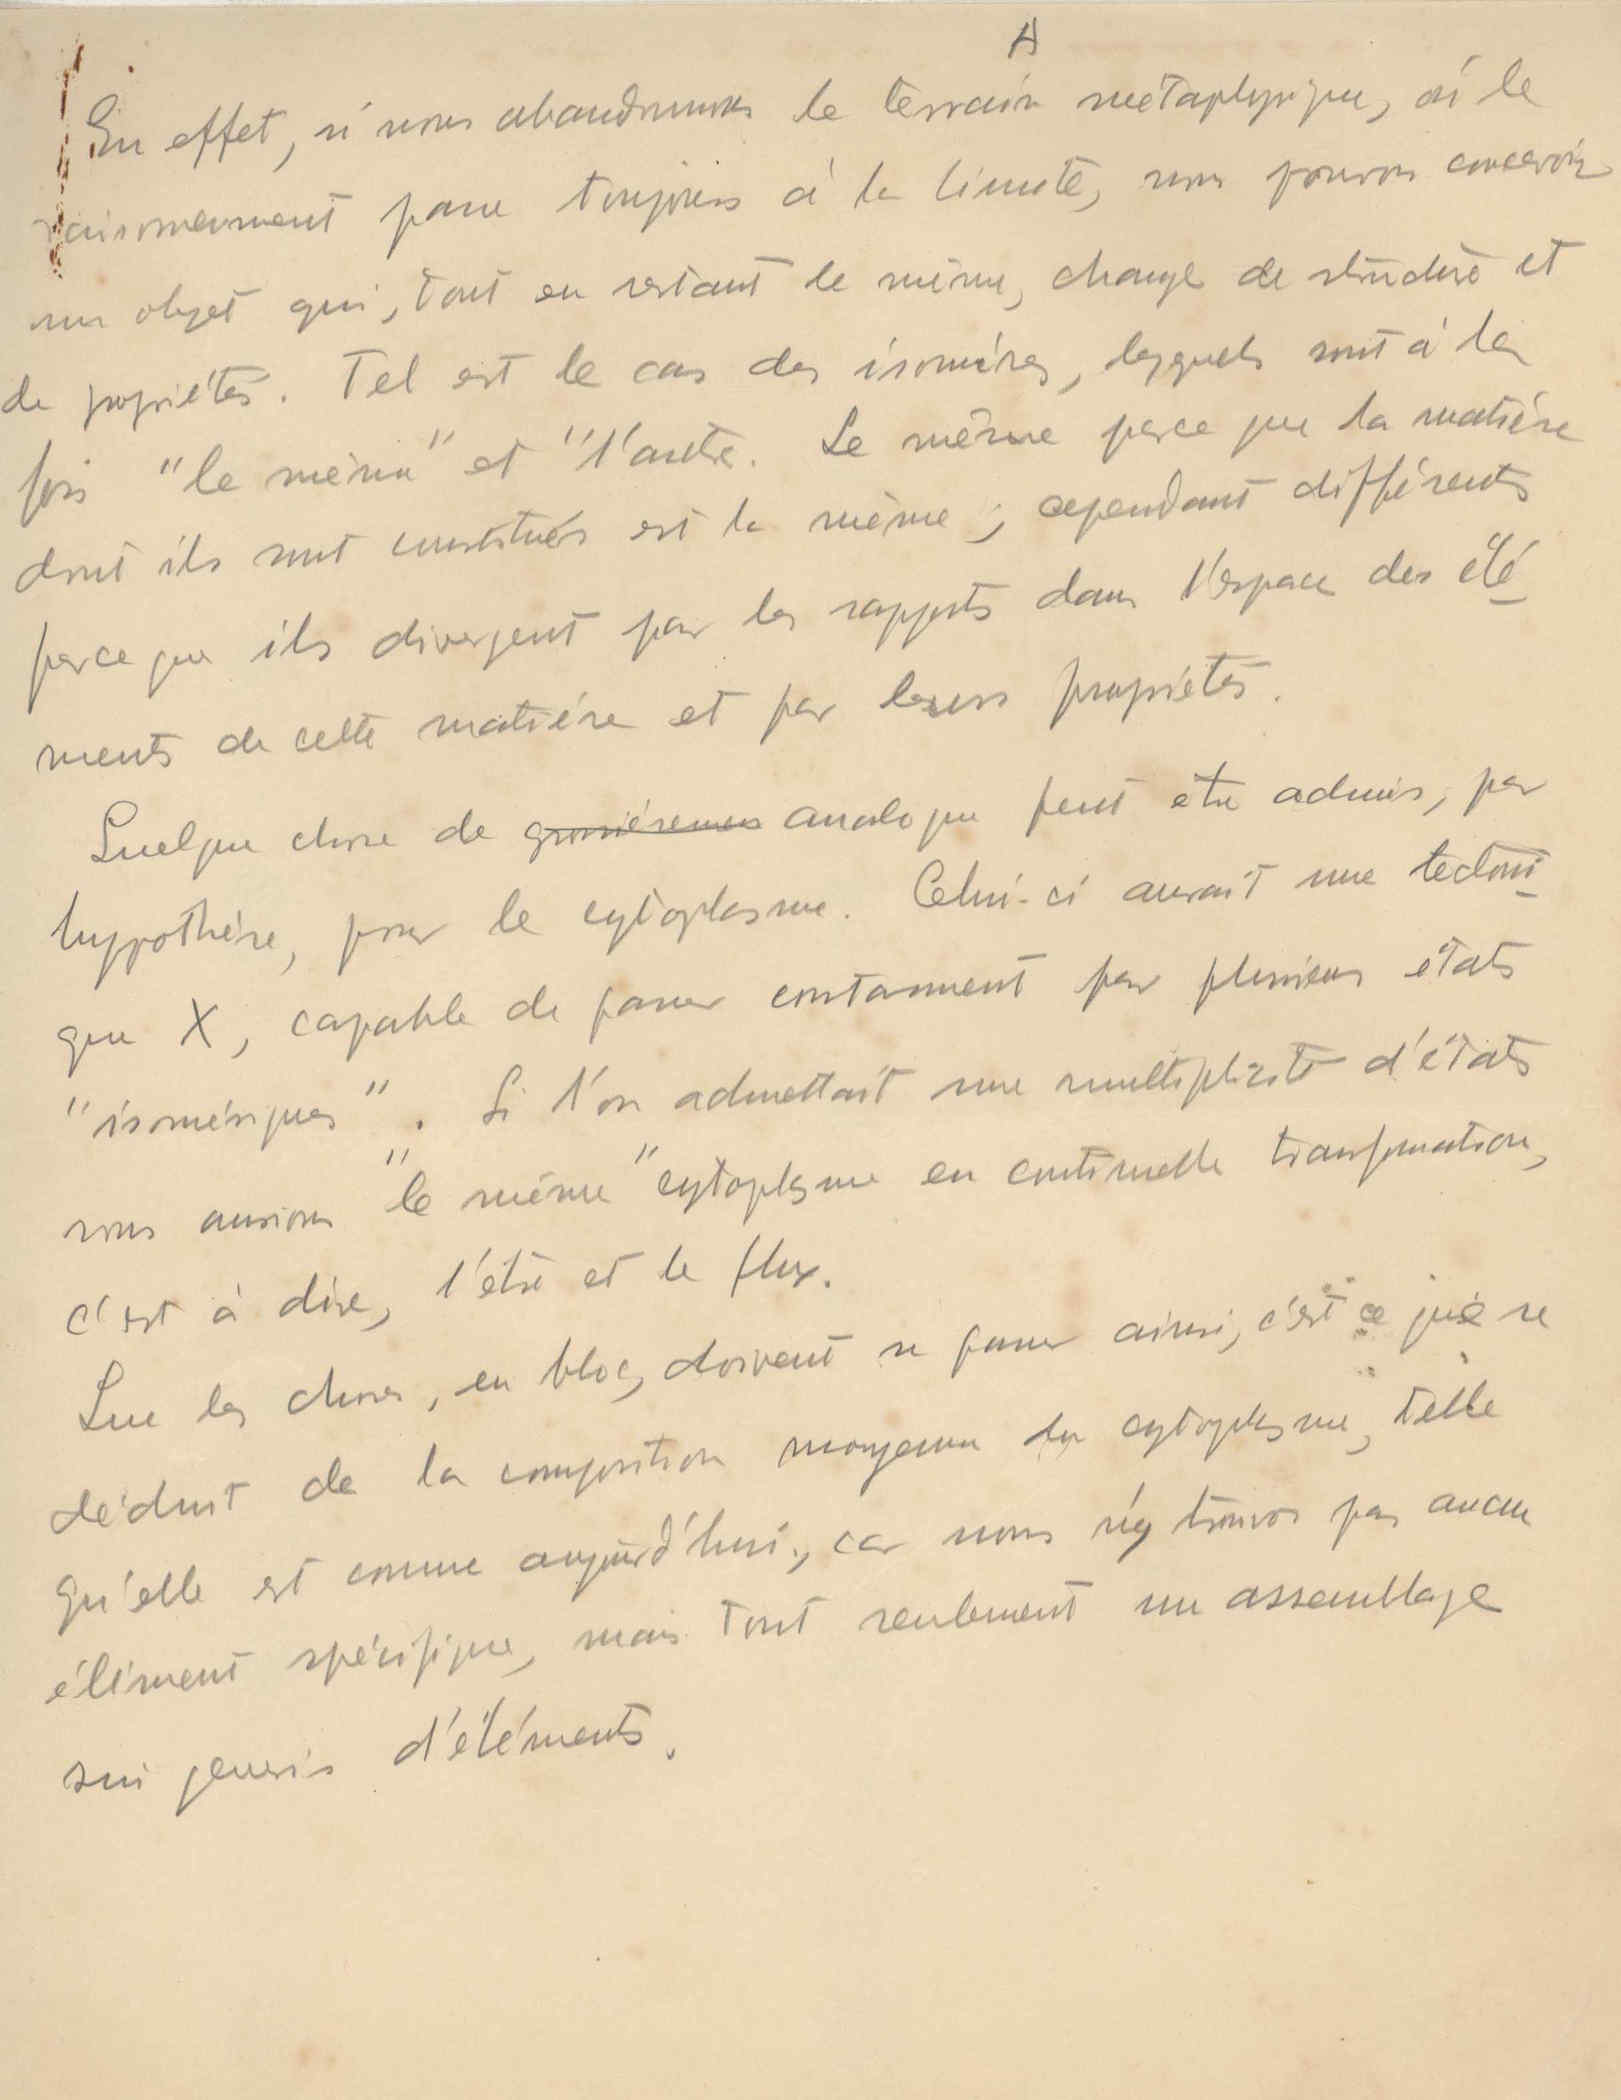 A
En effet, si nous abandonnons le terrain métaphysique, où le
raisonnement passe toujours à la limite, nous pouvons concevoir
un objet qui, tout en restant le même, change de structure et
de propriétés. Tel est le cas des isomères, lesquels sont à la
fois "le même" et "l'autre. Le même parce que la matière
dont ils sont constitués est la même; cependant différents
parce que ils divergent par les rapports dans l'espace des élé
ments de cette matière et par leurs propriétés.
Quelque chose de grossièremen analogue peut être admis, par
hypothèse, pour le cytoplasme. Celui-ci aurait une tectoni
que X, capable de passer constamment par plusieurs états
"isomériques". Si l'on admettait une multiplicité d'états
nous aurions "le même" cytoplasme en continuelle transformation,
c'est à dire, l'être et le flux.
Que les choses, en bloc, doivent se passer ainsi, c'est ce qui se
déduit de la composition moyenne du cytoplasme, telle
qu'elle est connue aujourd'hui, car nous n'y trouvons pas aucun
élément spécifique, mais tout seulement un assemblage
sui generis d'éléments.